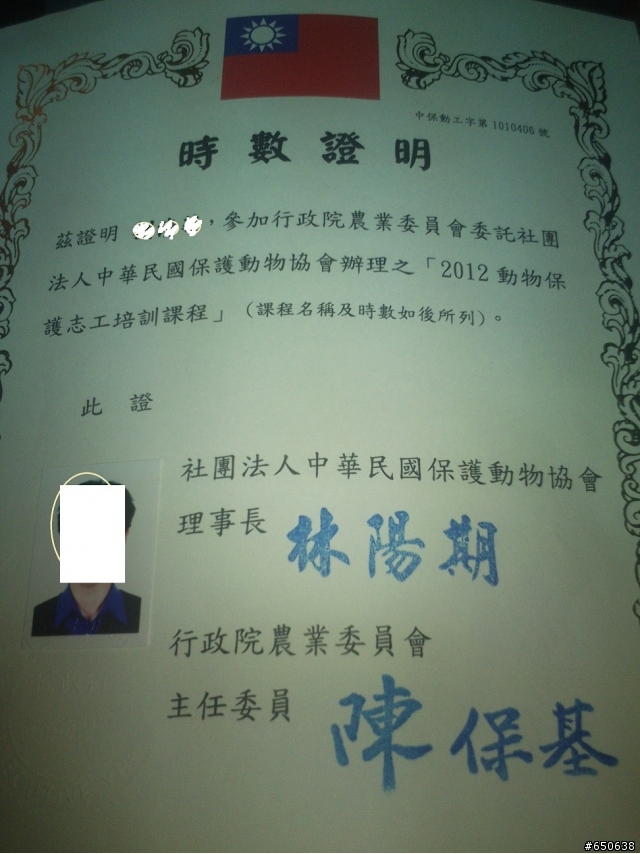 中保動工字第 1010406 號
時數證明
茲證明 ，參加行政院農業委員會委託社團
法人中華民國保護動物協會辦理之「2012 動物保
護志工培訓課程」（課程名稱及時數如後所列）。
此 證
社團法人中華民國保護動物協會
理事長 林陽期
行政院農業委員會
主任委員 陳保基
#650638